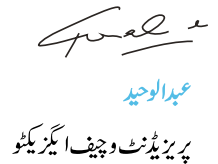 عبدالوحید
پریزیڈنٹ و چیف ایگزیکٹو